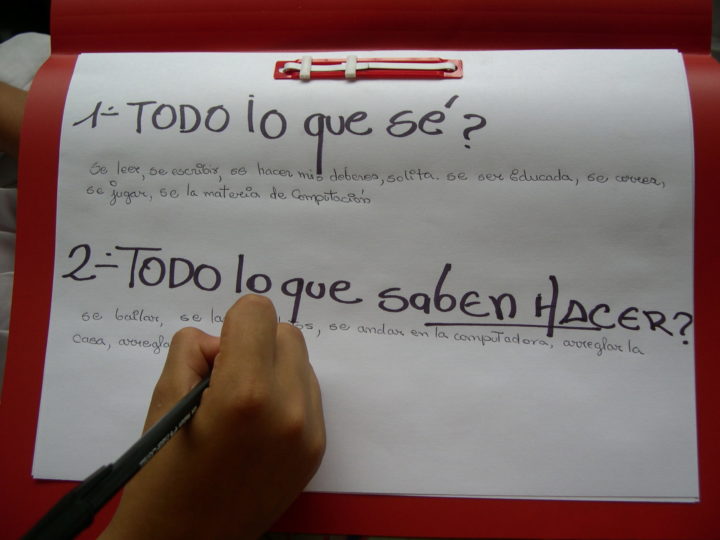 1- TODO lo que sé?
se leer, se escribir, se hacer mis deberes, solita. se ser Educada, se correr,
se jugar, se la materia de Computación
2- TODO lo que saben HACER?
se bailar, se la os, se andar en la computadora, arreglar la
casa, arregla